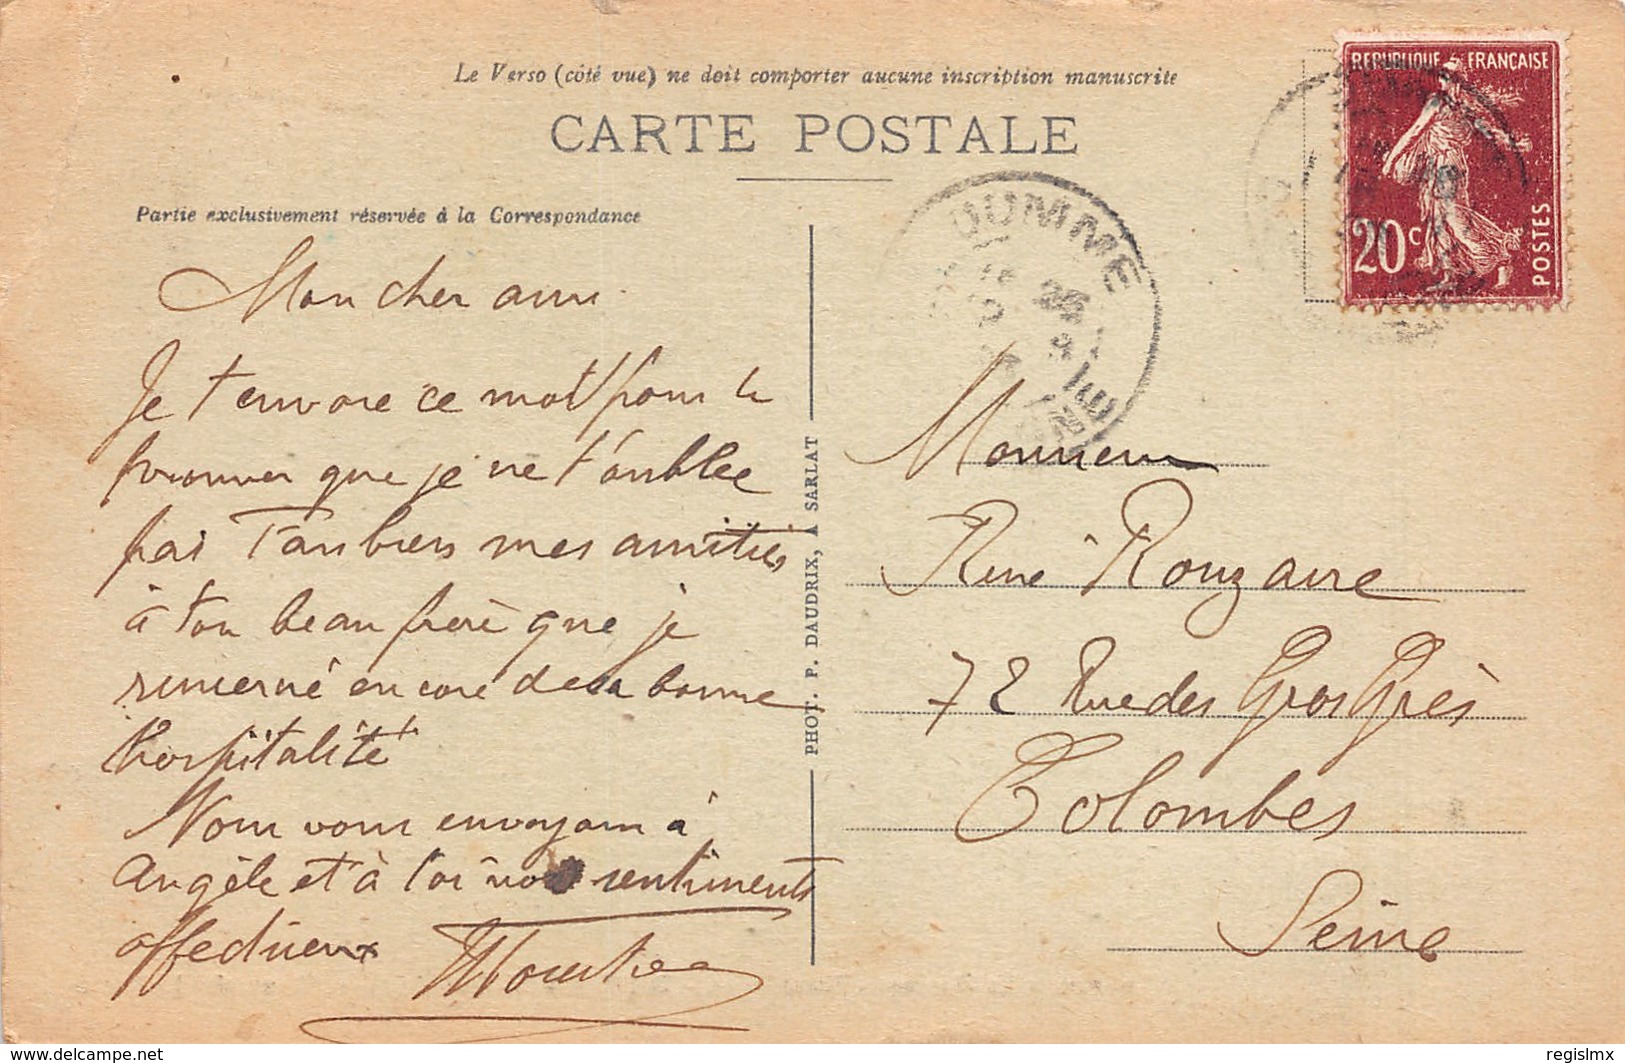 Le Verso (côté vue) ne doit comporter aucune inscription manuscrite
CARTE POSTALE
Partie exclusivement réservée à la Correspondance
REPUBLIQUE FRANÇAISE
20c
POSTES
Mon cher ami
Je t'envoie ce mot pour te
prouver que je ne t'oublee
pas Tan biens mes amitiés
à ton beau frère que je
remercné encore de la bonne
hospitalité
Nous vous envoyons à
Angèle et à toi nos sentiments
affectueux
PHOT. P. DAUDRIX, A SARLAT
DOMME
Monsieur
René Rouzaire
72 Rue des Gros Grès
Colombes
Seine
delcampe.net
regislmx